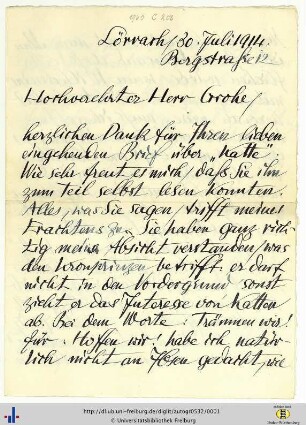 Lörrach/ 30. Juli 1914.
Bergstraße 12
Hochverehrter Herr Grohe/
herzlichen Dank für Ihren lieben
eingehenden Brief über „Katte“.
Wie sehr freut es mich/ daß Sie ihn
zum Teil selbst lesen konnten.
Alles/ was Sie sagen/ trifft meines
Erachtens zu. Sie haben ganz rich-
tig meine Absicht verstanden/ was
den Kronprinzen betrifft. er darf
nicht in den Vordergrund sonst
zieht er das Interesse von Katten
ab. Bei dem Worte: Träumen wir!
für: Hoffen wir! habe ich natür-
lich nicht an Ibsen gedacht, wie
http://dl.ub.uni-freiburg.de/diglit/autogr0532/0001
© Universitätsbibliothek Freiburg